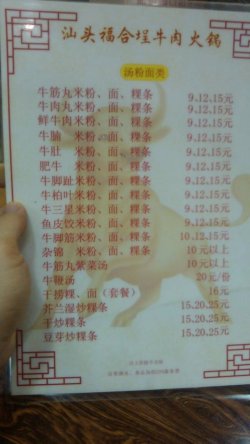 汕头福合埕牛肉火锅
汤粉面类
牛筋丸米粉、面、粿条 9、12、15元
牛肉丸米粉、面、粿条 9、12、15元
鲜牛肉米粉、面、粿条 9、12、15元
牛腩 米粉、面、粿条 9、12、15元
牛肚 米粉、面、粿条 9、12、15元
肥牛 米粉、面、粿条 9、12、15元
牛脚趾米粉、面、粿条 9、12、15元
牛柏叶米粉、面、粿条 9、12、15元
牛三星米粉、面、粿条 9、12、15元
鱼皮饺米粉、面、粿条 9、12、15元
牛脚筋米粉、面、粿条 10、12、15元
杂锦 米粉、面、粿条 10元以上
牛筋丸紫菜汤 10元以上
牛鞭汤 20元/份
干捞粿、面（套餐） 16元
芥兰湿炒粿条 15、20、25元
干炒粿条 15、20、25元
豆芽炒粿条 15、20、25元